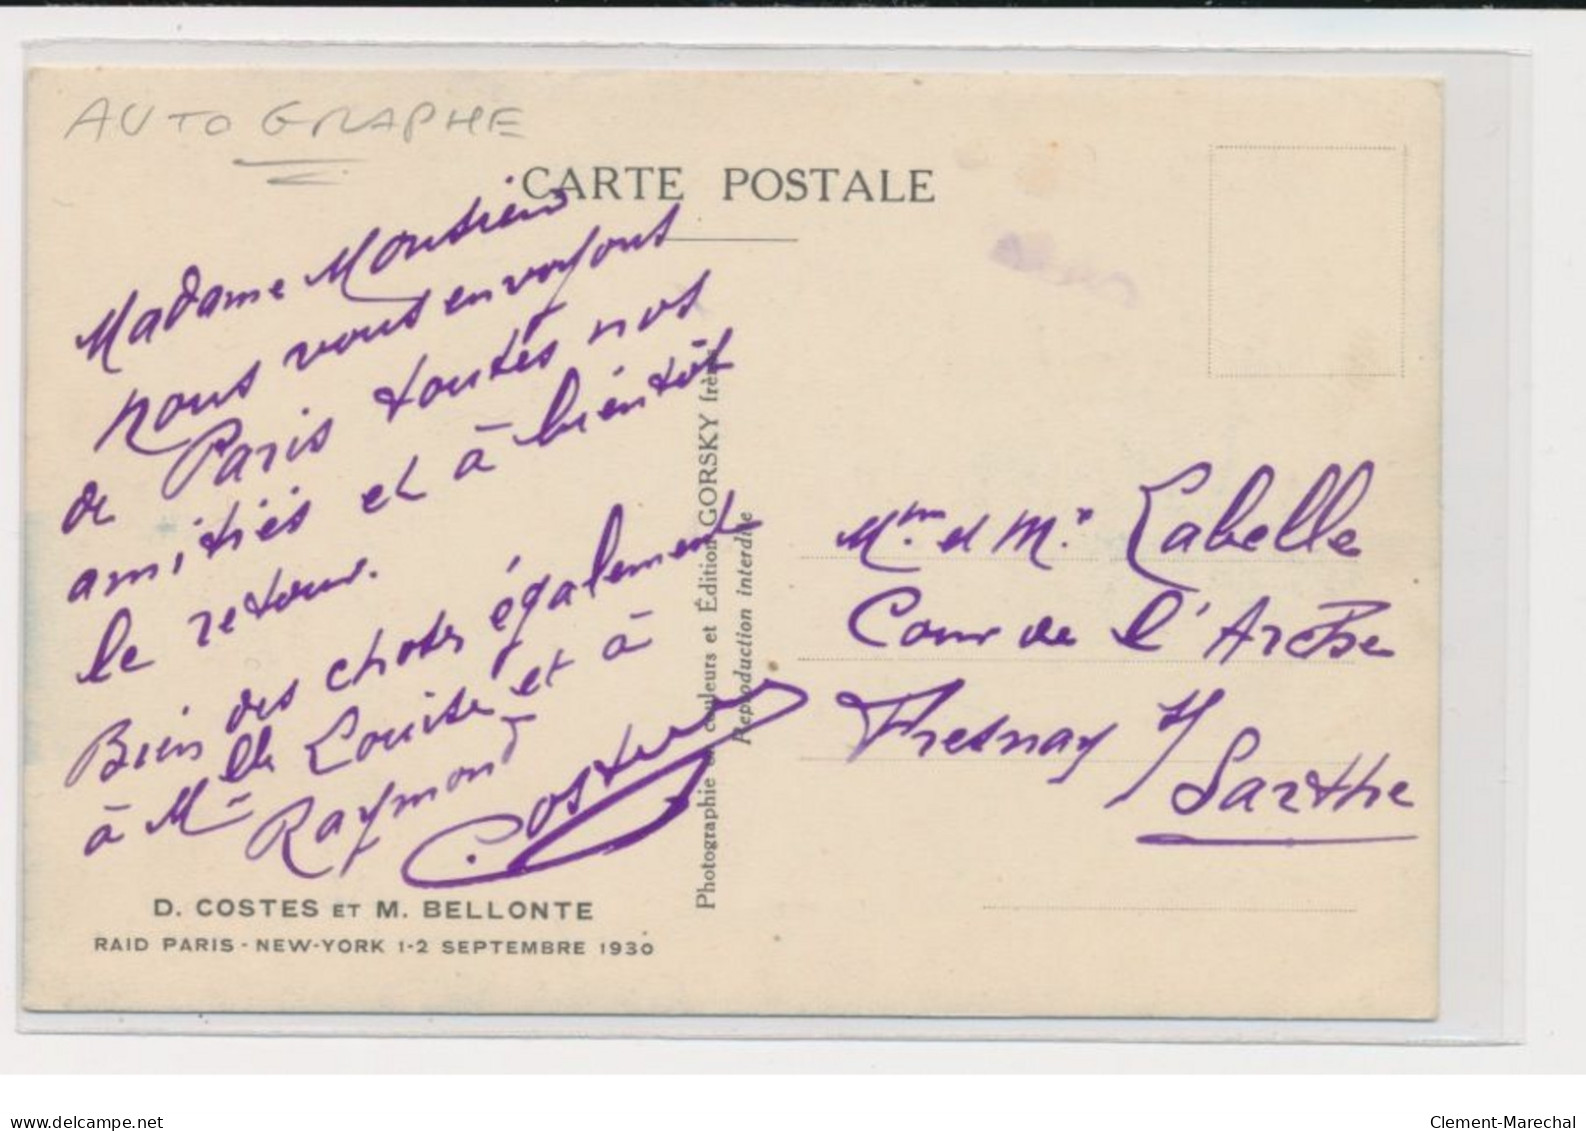 AUTOGRAPHE
CARTE POSTALE
Madame Monsieur
nous vous envoyons
de Paris toutes nos
amitiés et à bientôt
le retour.
Bien des choses également
à Mlle Louise et à
Raymond
Costes
D. COSTES ET M. BELLONTE
RAID PARIS - NEW-YORK 1-2 SEPTEMBRE 1930
Photographie en couleurs et Édition GORSKY frères
Reproduction interdite
Mme et Mr Labelle
Cour de l'Arche
Fresnay s/
Sarthe
www.delcampe.net
Clement-Marechal